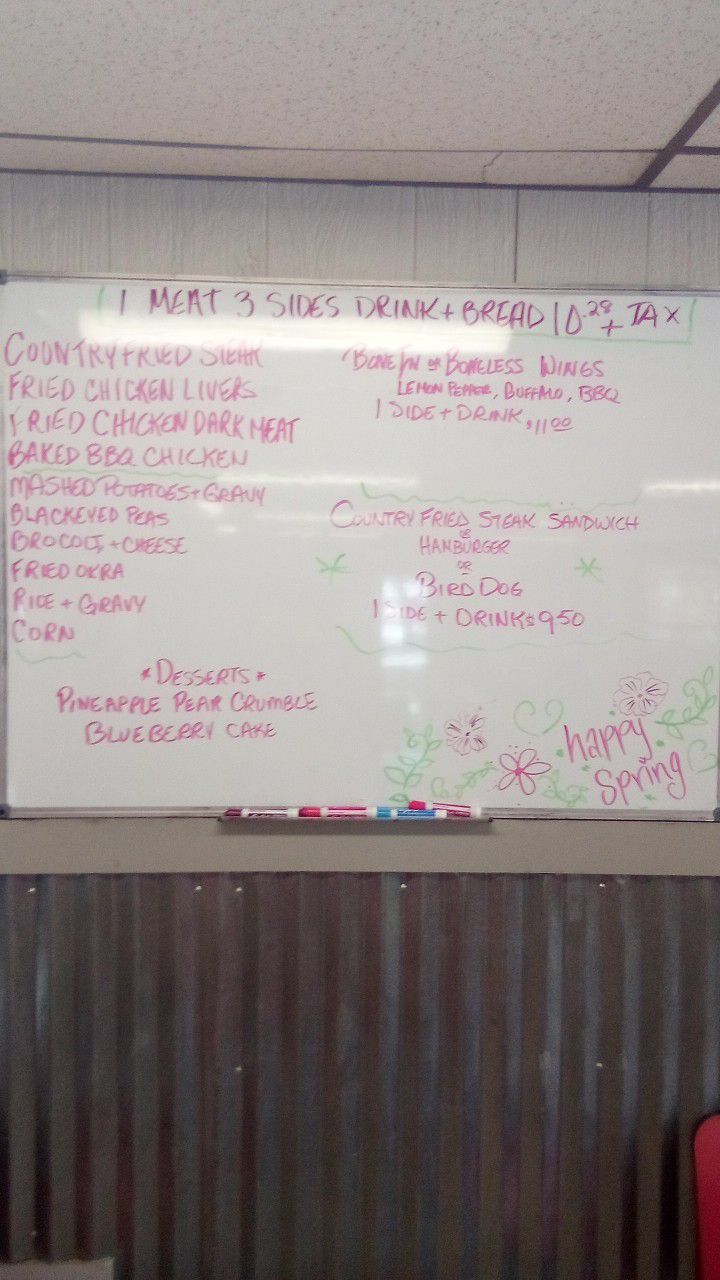 1 MEAT 3 SIDES DRINK + BREAD 10.28 + TAX
COUNTRY FRIED STEAK
FRIED CHICKEN LIVERS
FRIED CHICKEN DARK MEAT
BAKED BBQ CHICKEN
MASHED POTATOES + GRAVY
BLACKEYED PEAS
BROCOLI + CHEESE
FRIED OKRA
RICE + GRAVY
CORN
*DESSERTS*
PINEAPPLE PEAR CRUMBLE
BLUEBERRY CAKE
BONE IN OR BONELESS WINGS
LEMON PEPPER, BUFFALO, BBQ
1 SIDE + DRINK $11.00
COUNTRY FRIED STEAK SANDWICH
OR
HAMBURGER
OR
BIRD DOG
1 SIDE + DRINK $9.50
happy
Spring